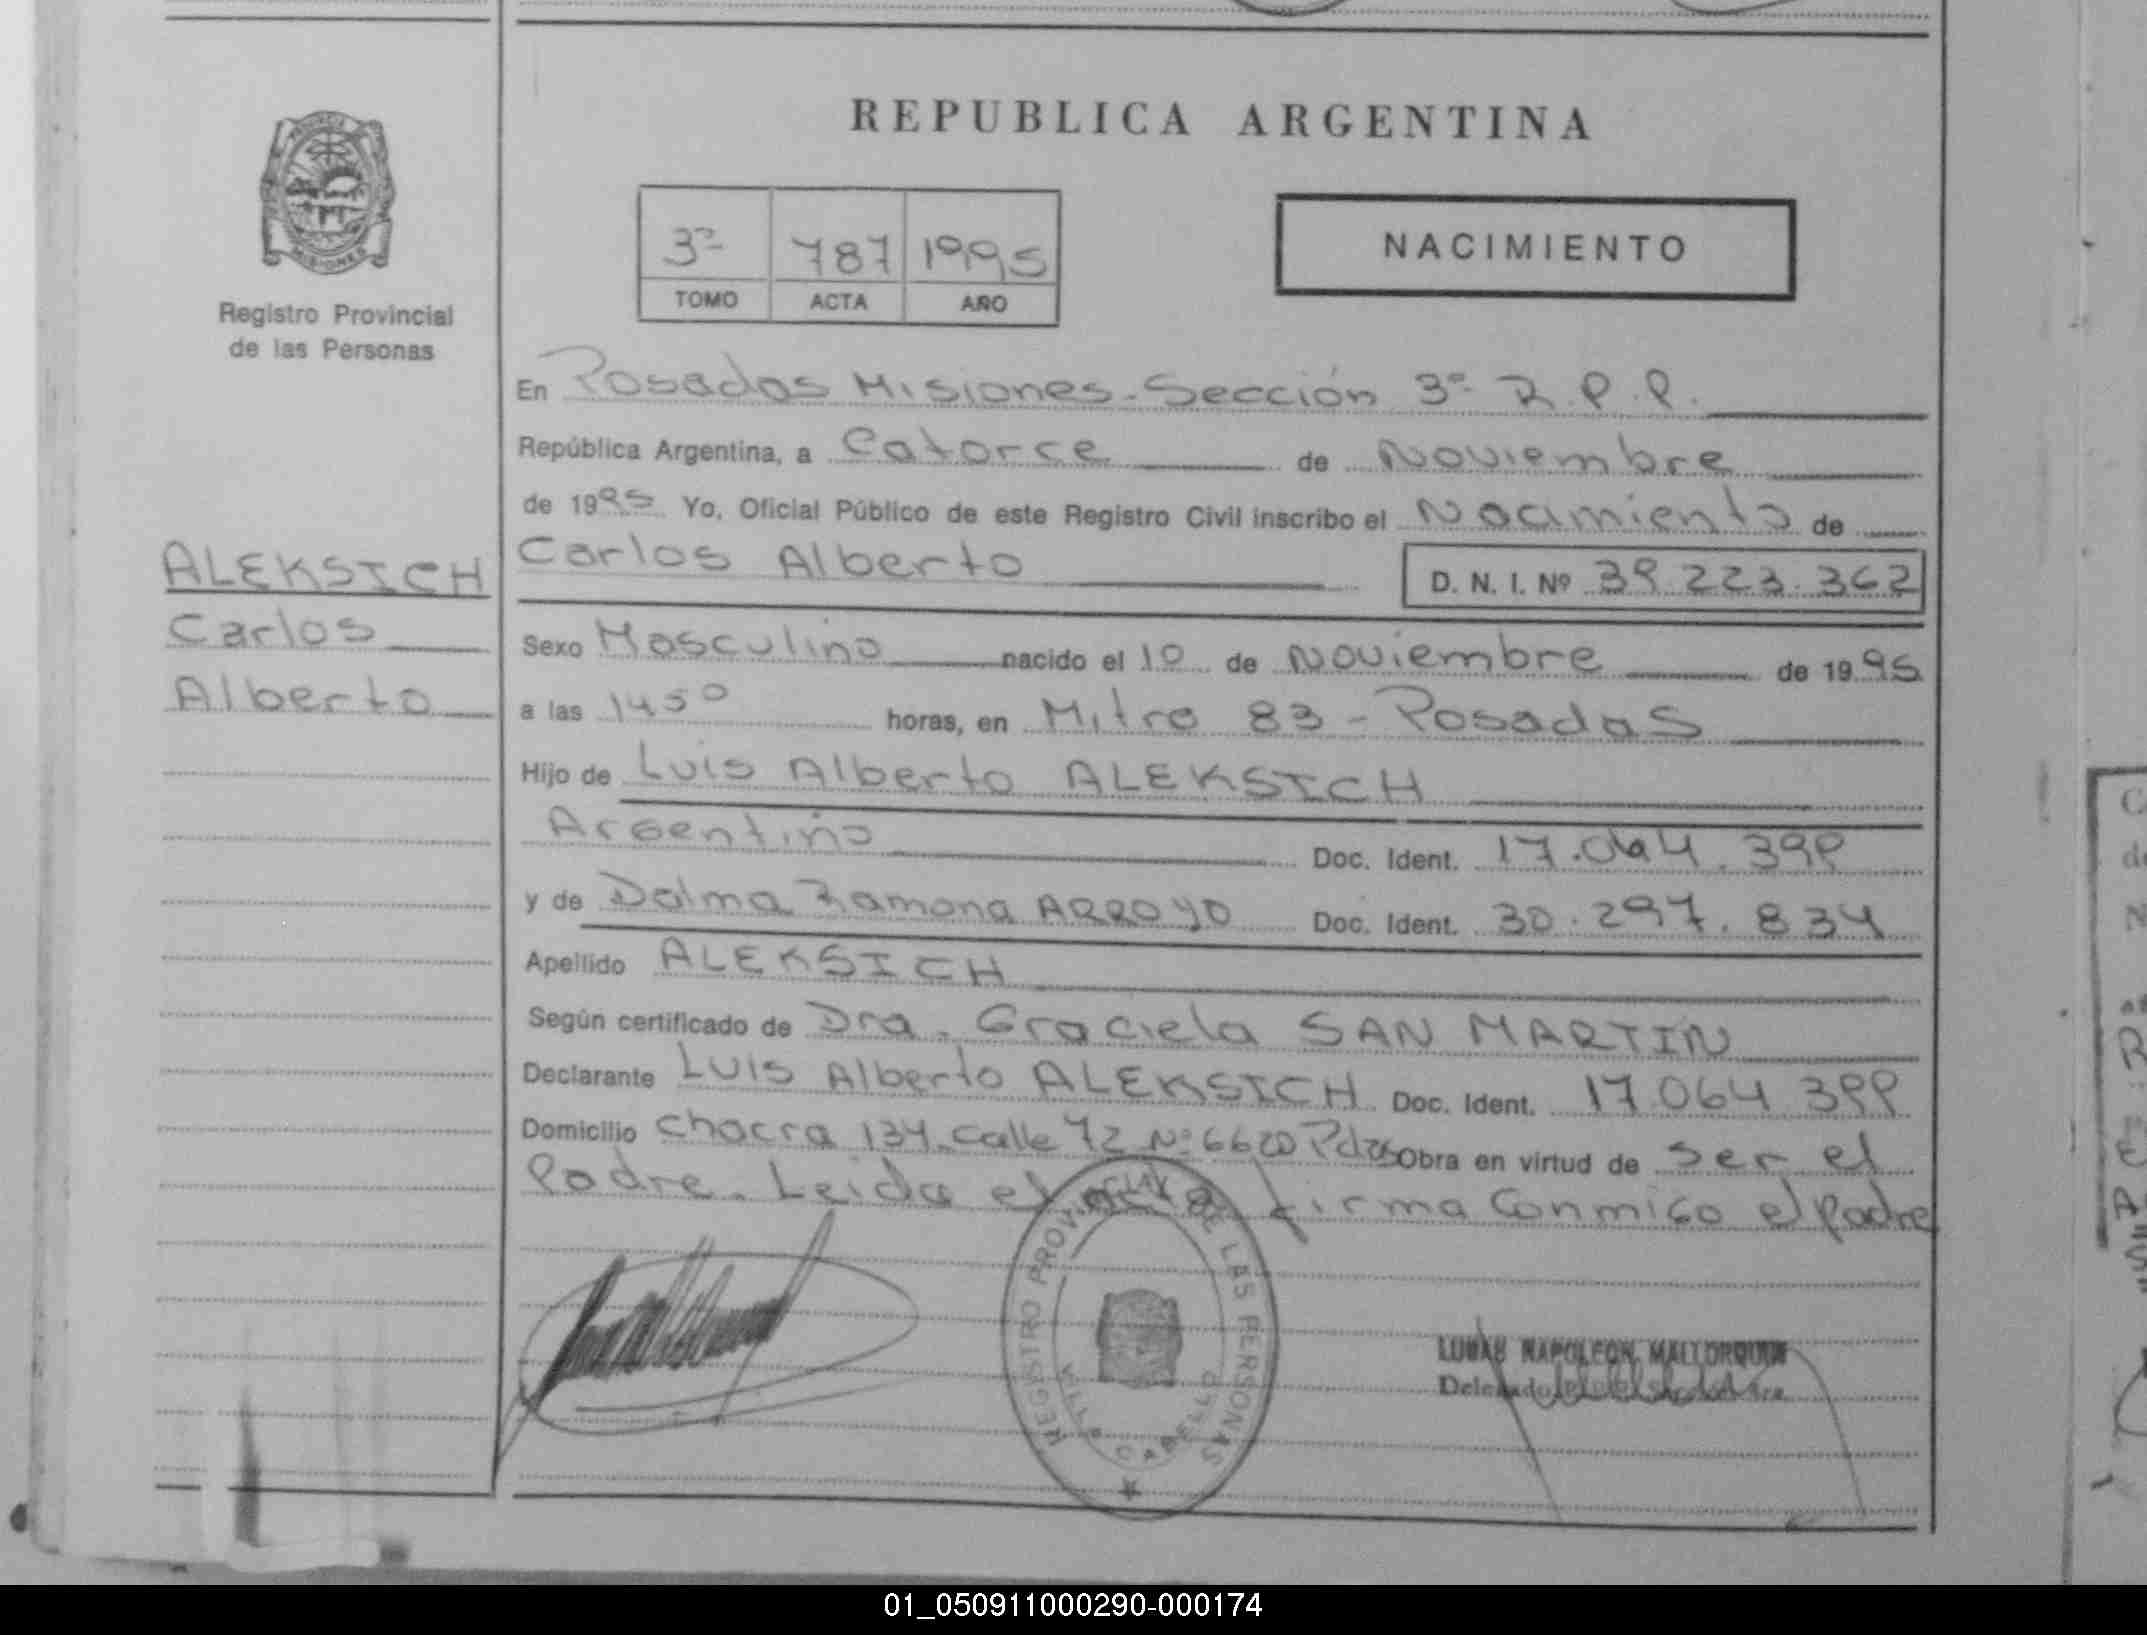 REPUBLICA ARGENTINA
PROVINCIA
MISIONES
Registro Provincial
de las Personas
3ª 787 1995
TOMO ACTA AÑO
NACIMIENTO
ALEKSICH
Carlos
Alberto
En Posadas Misiones - Sección 3ª R.P.P.
República Argentina, a Catorce de Noviembre
de 1995 Yo, Oficial Público de este Registro Civil inscribo el Nacimiento de
Carlos Alberto D. N. I. Nº 39.223.362
Sexo Masculino nacido el 10 de Noviembre de 1995
a las 1450 horas, en Mitre 83 - Posadas
Hijo de Luis Alberto ALEKSICH
Argentino Doc. Ident. 17.064.399
y de Dalma Ramona ARROYO Doc. Ident. 30.297.834
Apellido ALEKSICH
Según certificado de Dra. Graciela SAN MARTIN
Declarante LUIS Alberto ALEKSICH Doc. Ident. 17.064.399
Domicilio chacra 134 calle 72 Nº 6620 Pdas Obra en virtud de ser el
Padre. Leida el acta firma conmigo el padre
REGISTRO PROVINCIAL DE LAS PERSONAS
VILLA CABELLO
NAPOLEON
Delegado
01_050911000290-000174